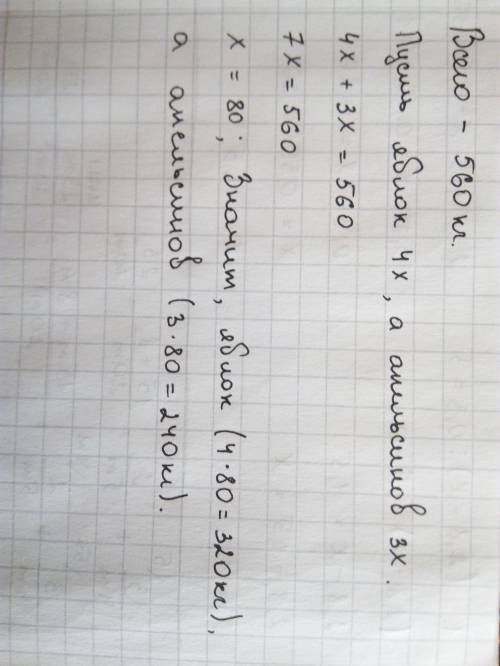 Всего - 560 кг.
Пусть яблок 4x, а апельсинов 3x.
4x + 3x = 560
7x = 560
x = 80; Значит, яблок (4·80=320кг),
а апельсинов (3·80=240кг).